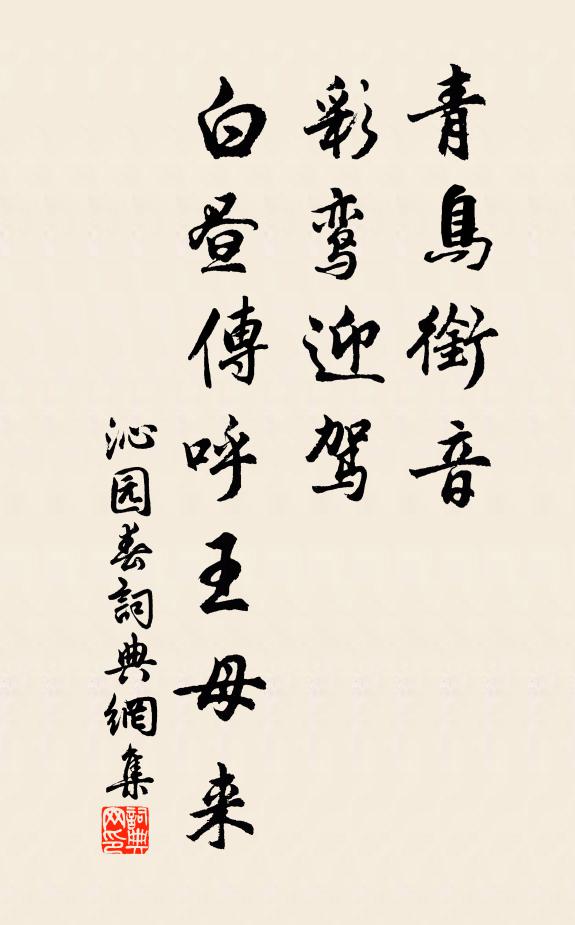 青鳥銜音
彩鸾迎驾
白昼傳呼王母来
沁园春詞典網集
詞典网印